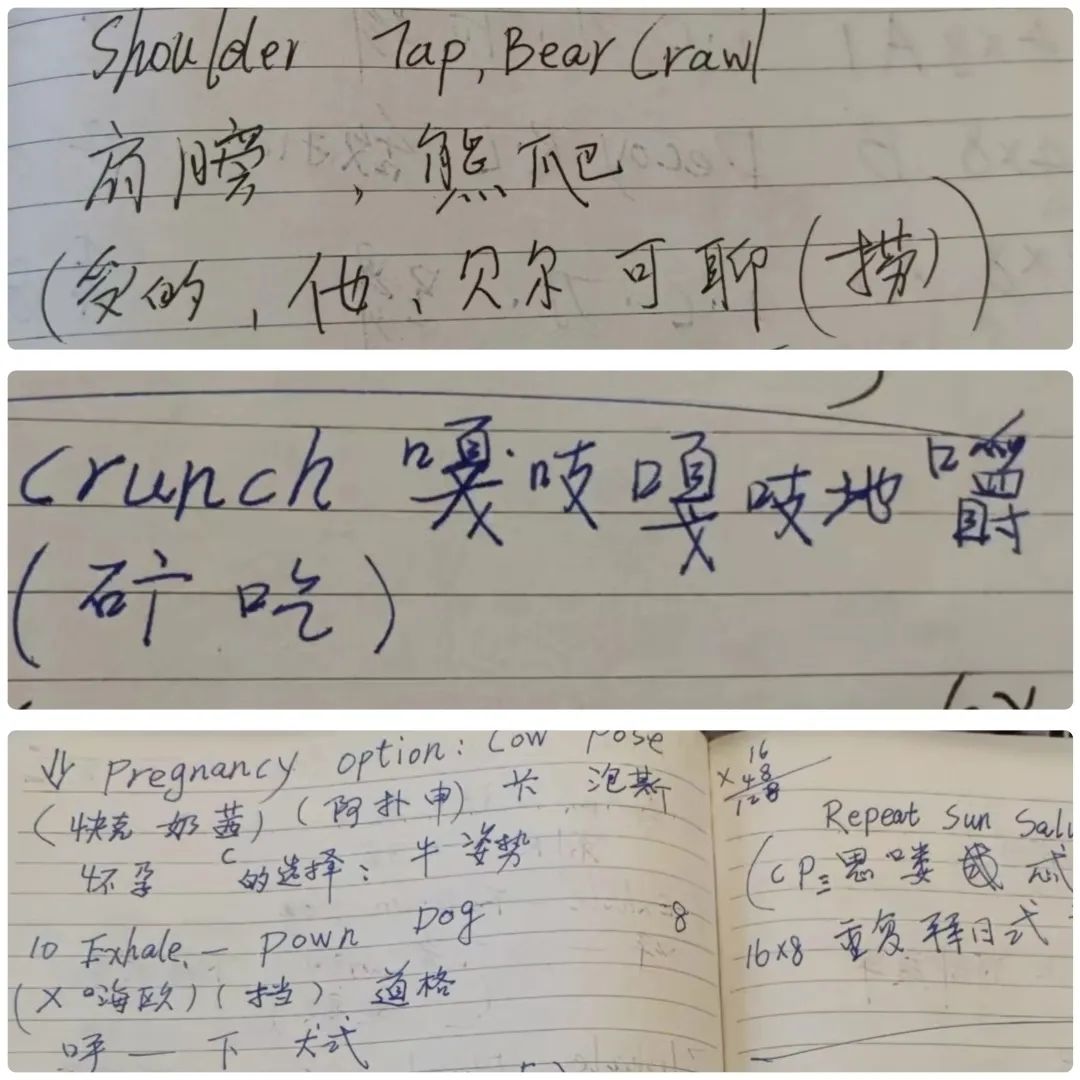 Shoulder Tap, Bear Crawl
肩膀，熊爬
(受的，他，贝尔可聊(捞))
Crunch 嘎吱嘎吱地嚼
(矿吃)
↓ Pregnancy option: Cow Pose
(快克奶茜)(阿扑申) 卡 泡斯
怀孕 的选择：牛姿势
10 Exhale — Down Dog
(X 海欧)(挡) 道格
呼 — 下 犬式
16
×48
128
Repeat Sun Salu
(CP三思喽
16×8 重复拜日式